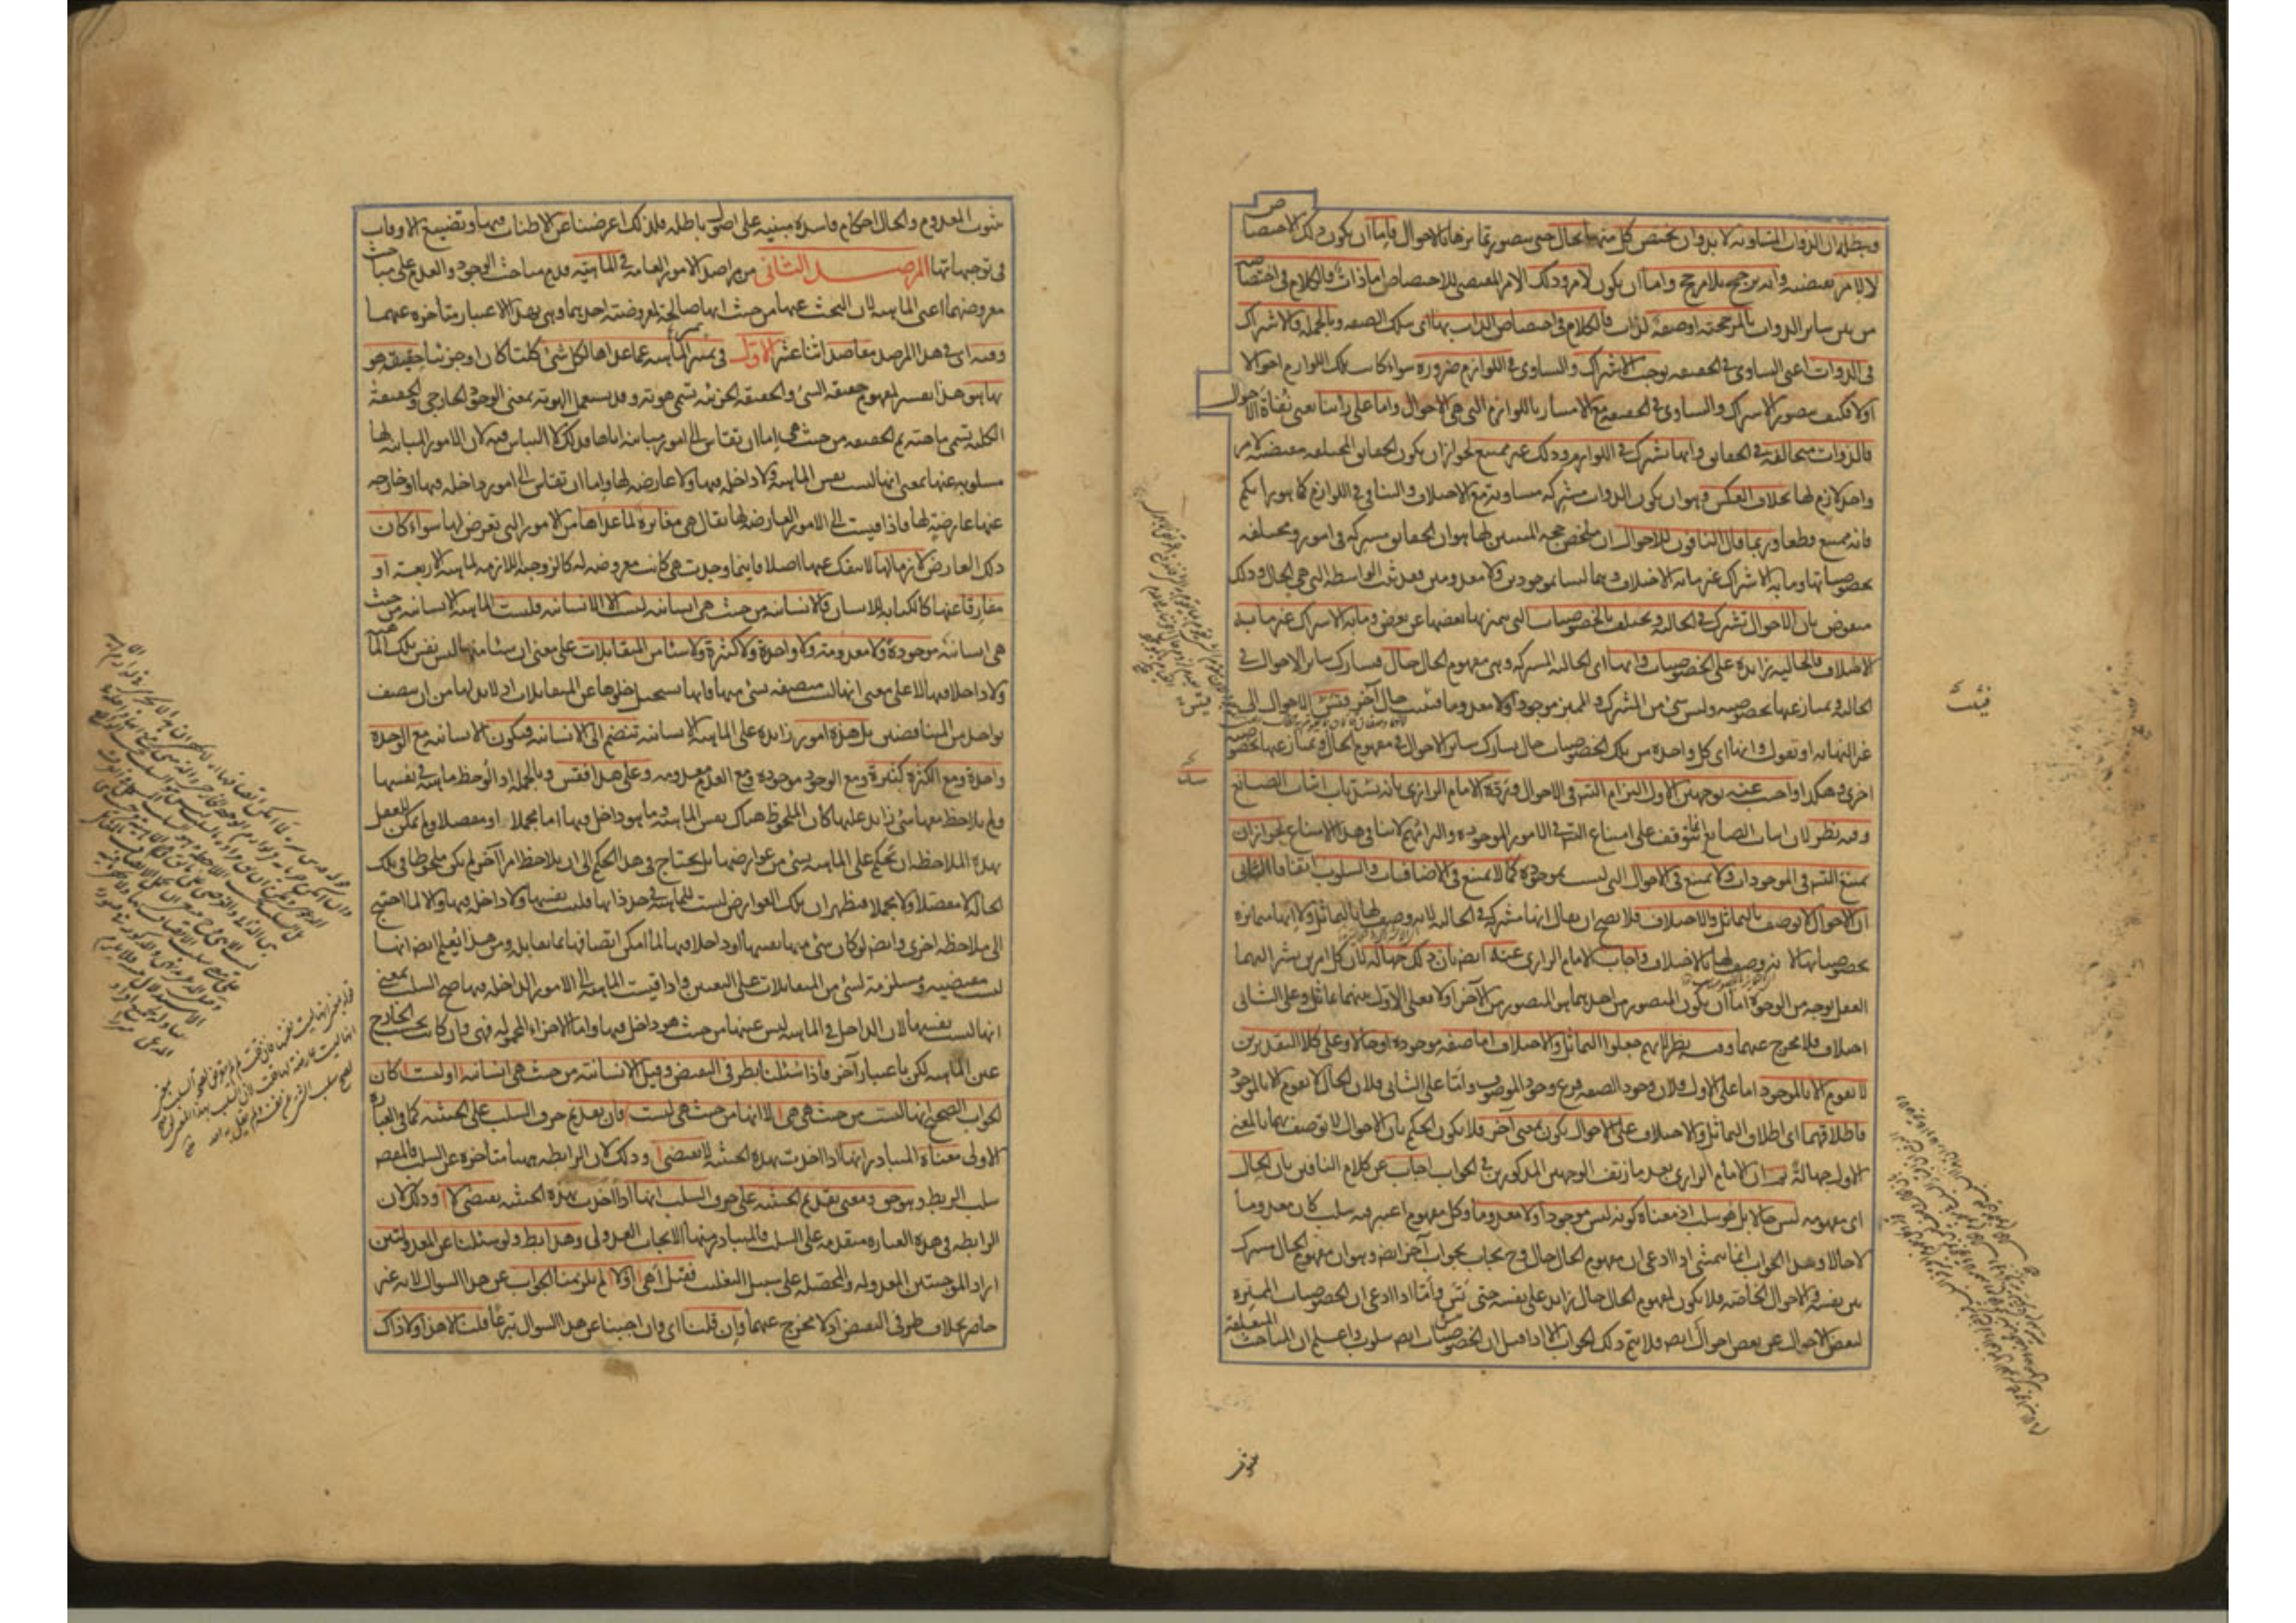 ويبطله ان الذوات المتساوية لا بد وان يختص كل منها بحال حتى يتصور تمايزها بالاحوال فاما ان يكون ذلك الاختصاص
لا لامر يقتضيه وانه ترجيح بلا مرجح واما ان يكون لامر وذلك الامر المقتضى للاختصاص اما ذات فالكلام فى اختصاصه
من بين سائر الذوات بالمرجحية او صفة لذات فالكلام فى اختصاص الذات بها اى بتلك الصفة وبالجملة فالاشتراك
فى الذوات اعنى التساوى فى الحقيقة يوجب الاشتراك والتساوى فى اللوازم ضرورة سواء كانت تلك اللوازم احوالا
او لا فكيف يتصور الاشتراك والتساوى فى الحقيقة مع الامتياز باللوازم التى هى الاحوال واما على راينا يعنى نفاة الاحوال
فالذوات متخالفة فى الحقايق وانها تشترك فى اللوازم وذلك غير ممتنع لجواز ان يكون الحقايق المختلفة مقتضية لامر
واحد لازم لها بخلاف العكس وهو ان يكون الذوات مشتركة متساوية مع الاختلاف والتنافى فى اللوازم كما هو رايكم
فانه ممتنع قطعا وربما قال النافون للاحوال ان ملخص حجة المثبتين لها هو ان الحقايق مشتركة فى امور ومختلفة
بخصوصياتها وما به الاشتراك غير ما به الاختلاف وهما ليسا موجودين ولا معدومين فقد ثبت الواسطة التى هى الحال وذلك
منقوض بان الاحوال تشترك فى الحالية وتختلف بالخصوصيات التى يميز بها بعضها عن بعض وما به الاشتراك غير ما به
الاختلاف فالحالية زايدة على الخصوصيات وانها اى الحالية المشتركة وهى مفهوم الحال حال فيشارك سائر الاحوال فى
الحالية ويمتاز عنها بخصوصية وليس شئ من المشترك والمميز موجودا ولا معدوما فيثبت حال آخر وتتس الاحوال الى
غير النهاية او نقول وانها اى كل واحدة من تلك الخصوصيات حال يشارك سائر الاحوال فى مفهوم الحال ويمتاز عنها بخصوصية
اخرى وهكذا واجيب عنه بوجهين الاول التزام التس فى الاحوال وزيفه الامام الرازى بانه يسد باب اثبات الصانع
وفيه نظر لان اثبات الصانع انما يتوقف على امتناع التس فى الامور الموجودة والتزامهم لا ينافى هذا الامتناع لجواز ان
يمتنع التس فى الموجودات ولا يمتنع فى الاحوال التى ليست بموجودة كما لا يمتنع فى الاضافيات والسلوب اتفاقا الثانى
ان الاحوال لا توصف بالتماثل والاختلاف فلا يصح ان يقال انها مشتركة فى الحالية لانه وصف لها بالتماثل ولا انها متمايزة
بخصوصياتها لانه وصف لها بالاختلاف واجاب الامام الرازى عنه ايضا بان ذلك جهالة لان كل امرين يشير اليهما
العقل بوجه من الوجوه اما ان يكون المتصور من احدهما هو المتصور من الآخر او لا فعلى الاول بينهما تماثل وعلى الثانى
اختلاف فلا مخرج عنهما وفيه نظر لانهم جعلوا التماثل والاختلاف اما صفة موجودة او حالا وعلى كلا التقديرين
لا يقوم الا بالموجود اما على الاول فلان وجود الصفة فرع وجود الموصوف واما على الثانى فلان الحال لا يقوم الا بالموجود
فاطلاقهما اى اطلاق التماثل والاختلاف على الاحوال يكون بمعنى آخر فلا يكون الحكم بان الاحوال لا توصف بهما بالمعنى
الاول جهالة ثم ان الامام الرازى بعد ما زيف الوجهين المذكورين فى الجواب اجاب عن كلام النافين بان الحال
اى مفهومه ليس حالا بل هو سلب اذ معناه كونه ليس موجودا ولا معدوما وكل مفهوم اعتبر فيه سلب كان معدوما
لا حالا وهذا الجواب انما يتمشى اذا ادعى ان مفهوم الحال حال وح يجاب بجواب آخر ايضا وهو ان مفهوم الحال مشترك
بين نفسه والاحوال الخاصة فلا يكون لمفهوم الحال حال زايد على نفسه حتى تتس واما اذا ادعى ان الخصوصيات المميزة
لبعض الاحوال عن بعض احوال ايضا فلا يتم ذلك الجواب الا اذا قيل ان الخصوصيات ايضا سلوب واعلم ان المباحث المتعلقة
بثبوت
ثبوت المعدوم والحال احكام فاسدة مبنية على اصول باطلة فلذلك اعرضنا عن الاطناب فيها وتضييع الاوقات
فى توجيهاتها المرصد الثانى من مراصد الامور العامة فى الماهية قدم مباحث الوجود والعدم على مباحث
معروضهما اعنى الماهية لان البحث عنها من حيث انها صالحة لمعروضية احدهما وهى بهذا الاعتبار متأخرة عنهما
وفيه اى فى هذا المرصد مقاصد اثنا عشر الاول فى تميز الماهية عما عداها لكل شئ كليا كان او جزئيا حقيقة هو
بها هو هذا تفسير لمفهوم حقيقة الشئ والحقيقة الجزئية تسمى هوية وقد يستعمل الهوية بمعنى الوجود الخارجى والحقيقة
الكلية تسمى ماهية ثم الحقيقة من حيث هى اما ان تقاس الى امور مباينة اياها فذلك لا التباس فيه لان الامور المباينة لها
مسلوبة عنها بمعنى انها ليست نفس الماهية ولا داخلة فيها ولا عارضة لها واما ان تقاس الى امور داخلة فيها او خارجة
عنها عارضة لها فاذا قيست الى الامور العارضة لها يقال هى مغايرة لما عداها من الامور التى تعرض لها سواء كان
ذلك العارض لازما لها لا ينفك عنها اصلا فاينما وجدت هى كانت معروضة له كالزوجية اللازمة لماهية الاربعة او
مفارقا عنها كالكتابة للانسان فالانسانية من حيث هى انسانية ليست الا الانسانية فليست الماهية الانسانية من حيث
هى انسانية موجودة ولا معدومة ولا واحدة ولا كثيرة ولا شيئا من المتقابلات على معنى ان شيئا منها ليس نفس تلك الماهية
ولا داخلا فيها لا على معنى انها ليست متصفة بشئ منها فانها يستحيل خلوها عن المتقابلات اذ لا بد لها من ان يتصف
بواحد من المتناقضين بل هذه امور زايدة على الماهية الانسانية تنضم الى الانسانية فيكون الانسانية مع الوحدة
واحدة ومع الكثرة كثيرة ومع الوجود موجودة ومع العدم معدومة وعلى هذا فقس وبالجملة اذا لوحظ ماهية فى نفسها
ولم يلاحظ معها شئ زايد عليها كان الملحوظ هناك نفس الماهية وما هو داخل فيها اما مجملا او مفصلا ولم يمكن للعقل
بهذه الملاحظة ان يحكم على الماهية بشئ من عوارضها بل يحتاج فى هذا الحكم الى ان يلاحظ امرا آخر لم يكن ملحوظا فى تلك
الحالة لا مفصلا ولا مجملا فيظهر ان تلك العوارض ليست للماهية فى حد ذاتها فليست نفسها ولا داخلة فيها والا لما احتيج
الى ملاحظة اخرى وايضا لو كان شئ منها نفسها او داخلا فيها لما امكن اتصافها بما يقابله ومن هذا يعلم ايضا انها
ليست مقتضية ومستلزمة لشئ من المتقابلات على التعيين واذا قيست الماهية الى الامور الداخلة فيها صح السلب بمعنى
انها ليست نفسها لان الداخل فى الماهية ليس عينها من حيث هو داخل فيها واما الاجزاء المحمولة فهى وان كانت بحسب الخارج
عين الماهية لكن باعتبار آخر فاذا سئلنا بطرفى النقيض وقيل الانسانية من حيث هى انسانية ا او ليست ا كان
الجواب الصحيح انها ليست من حيث هى هى ا لا انها من حيث هى ليست ا فان تقديم حرف السلب على الحيثية كما فى العبارة
الاولى معناه المتبادر انها اذا اخذت بهذه الحيثية لا يقتضى ا وذلك لان الرابطة ههنا متأخرة عن السلب فالمقصود
سلب الربط وهو حق ومعنى تقديم الحيثية على حرف السلب انها اذا اخذت بهذه الحيثية يقتضى لا ا وذلك لان
الرابطة فى هذه العبارة متقدمة على السلب فالمتبادر منها الايجاب العدولى وهذا باطل ولو سئلنا عن المعدولتين
اراد الموجبتين المعدولة والمحصلة على سبيل التغليب فقيل أهى ا او لا ا لم يلزمنا الجواب عن هذا السؤال لانه غير
حاصر بخلاف طرفى النقيض اذ لا مخرج عنهما وان قلنا اى وان اجبنا عن هذا السؤال تبرعا قلنا لا هذا ولا ذاك